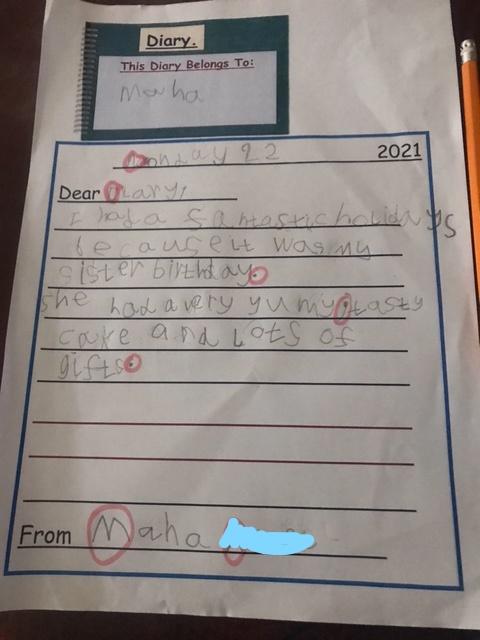 Diary.
This Diary Belongs To:
Maha
Monday 22 2021
Dear Diary,
I had a fantastic holidays
because it was my
sister birthday.
she had a very yumy, tasty
cake and lots of
gifts.
From Maha